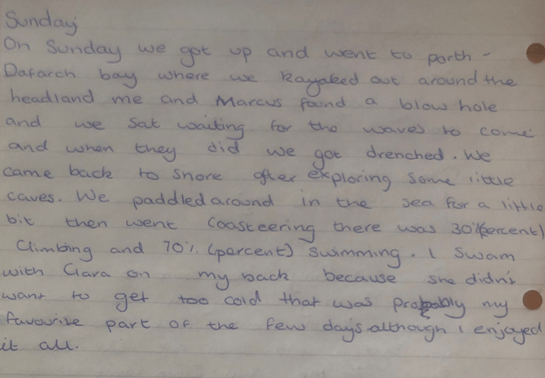 Sunday
On Sunday we got up and went to porth -
Dafarch bay where we kayaked out around the
headland me and Marcus found a blow hole
and we sat waiting for the waves to come
and when they did we got drenched. We
came back to shore after exploring some little
caves. We paddled around in the sea for a little
bit then went Coasteering there was 30% (percent)
Climbing and 70% (percent) swimming. I swam
with Ciara on my back because she didn't
want to get too cold that was probably my
favourite part of the few days although I enjoyed
it all.